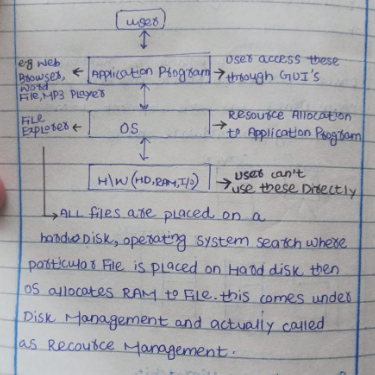 user
eg Web
Browser,
Word
File, MP3 Player
Application Program
User access these
through GUI's
File
Explorer
OS
Resource Allocation
to Application Program
H\W (HD, RAM, I/O)
User can't
use these Directly
All files are placed on a
hard Disk, operating system search where
particular File is placed on Hard disk then
OS allocates RAM to File. this comes under
Disk Management and actually called
as Recource Management.